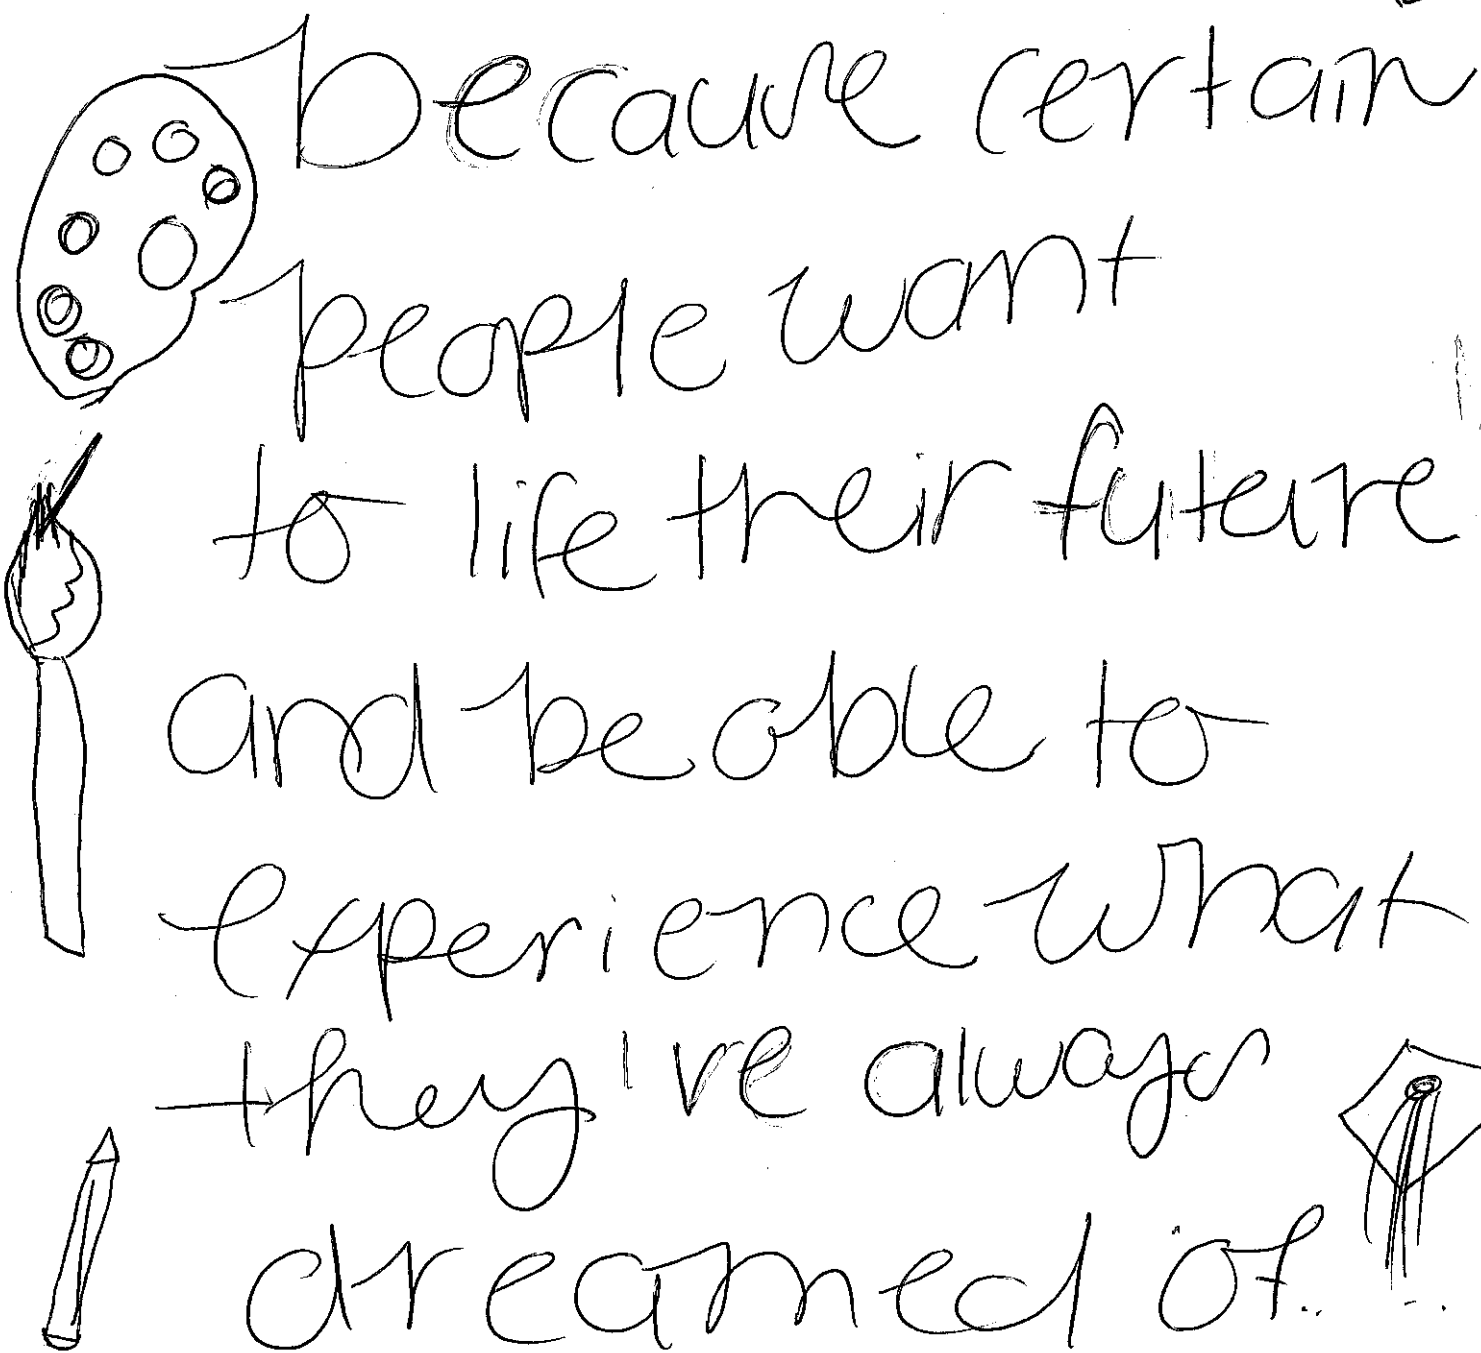 because certain
people want
to life their future
and be able to
experience what
they've always
dreamed of...